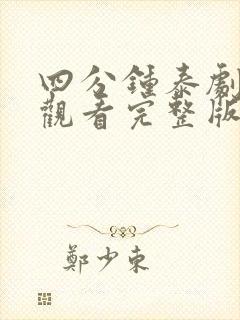 四分鍾泰劇
觀看完整版
鄭少東